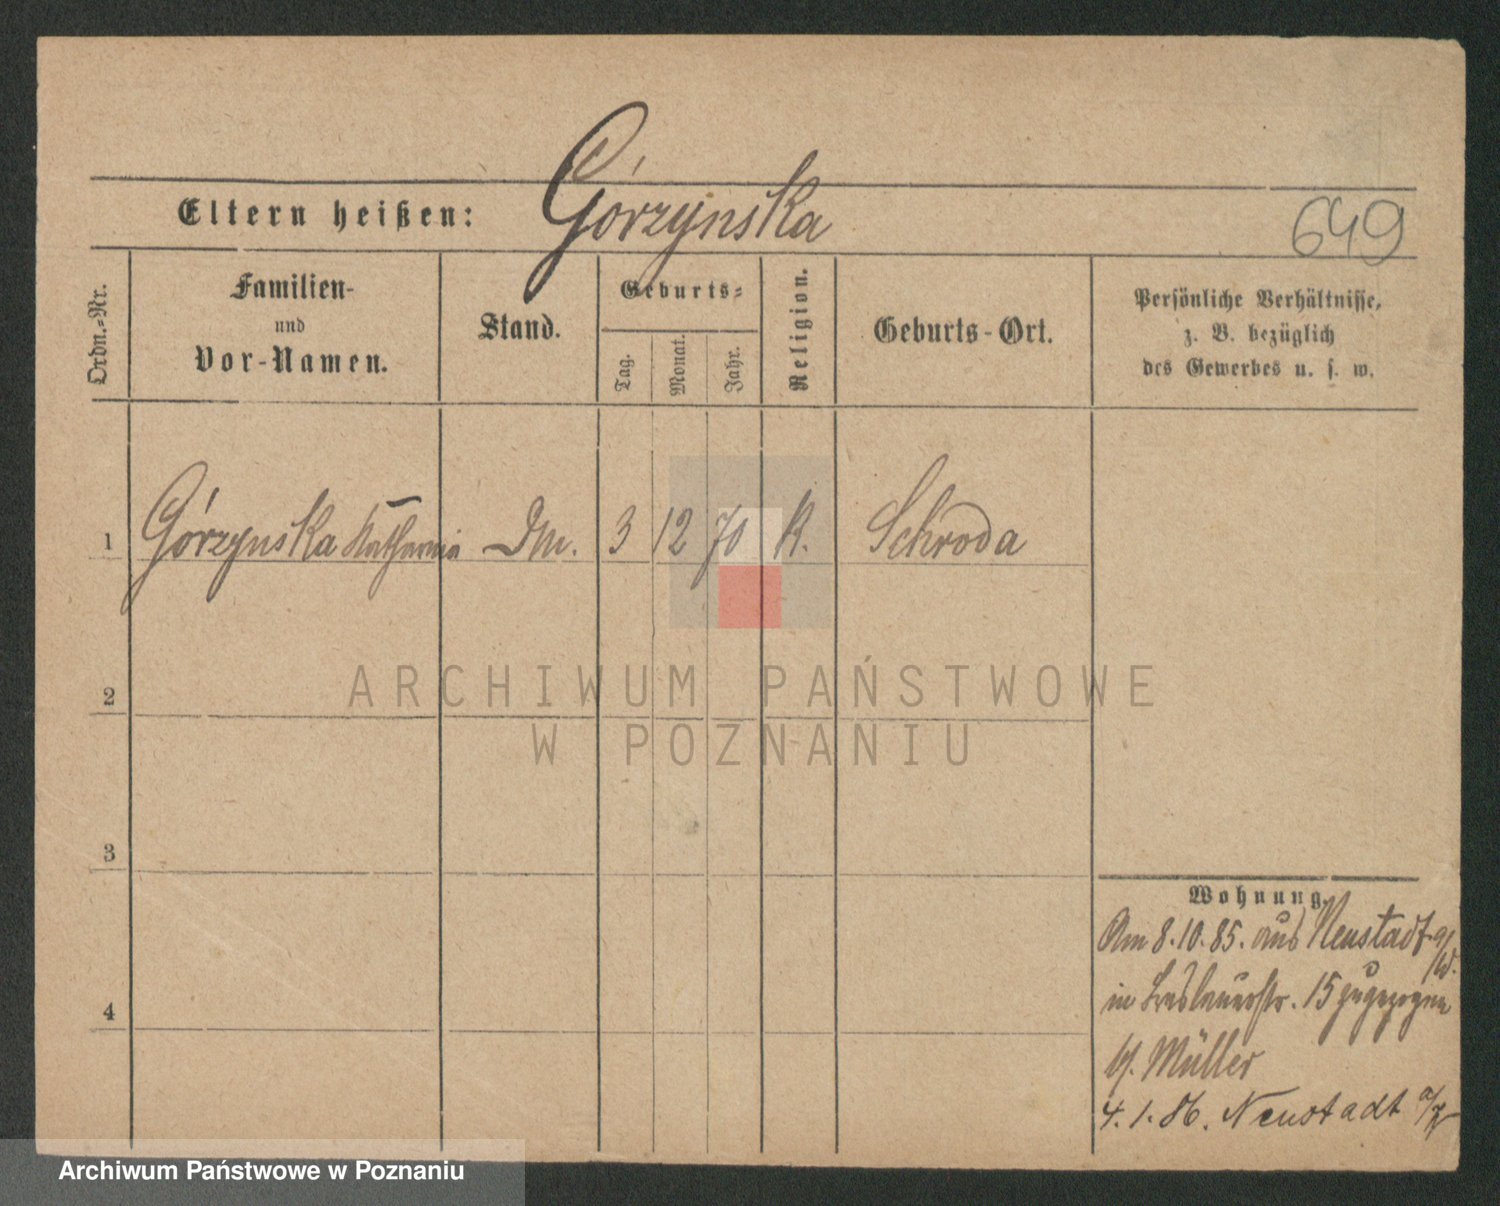 Górzynska
Eltern heißen:
649
Ordn.-Nr.
Familien-
und
Vor-Namen.
Stand.
Geburts-
Tag.
Monat.
Jahr.
Religion.
Geburts-Ort.
Persönliche Verhältnisse,
z. B. bezüglich
des Gewerbes u. s. w.
1 Górzynska Katharina Dm. 3 12 70 K. Schroda
2
3
4
Wohnung.
Am 8.10.85. aus Neustadt a/W.
in Breslauerstr. 15 zugezogen
b/. Müller
4.1.86. Neustadt
ARCHIWUM PAŃSTWOWE
W POZNANIU
Archiwum Państwowe w Poznaniu